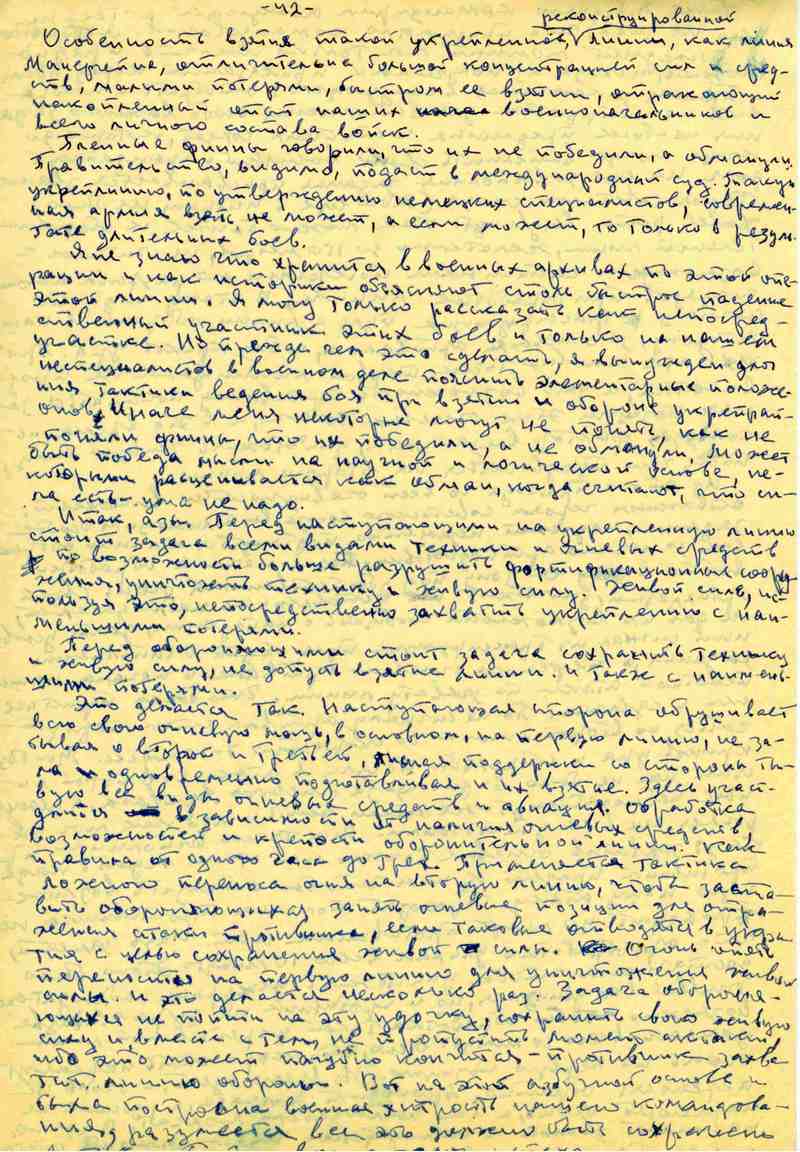 -42-
реконструированной
Особенность взятия такой укрепленной, линии, как линия
Манергейма, отличительна большой концетрацией сил и сред-
ств, малыми потерями, быстром ее взятии, отражающий
накопленный опыт наших военноначальников и
всего личного состава войск.
Пленные финны говорили, что их не победили, а обманули.
Правительство, видимо, подаст в международный суд. Такую
укреплинию, по утверждению немецких специалистов, современ-
ная армия взять не может, а если может, то только в резуль-
тате длительных боев.
Я не знаю что хранится в военных архивах по этой опе-
рации и как историки объясняют столь быстрое падение
этой линии. Я могу только рассказать как непосред-
ственный участник этих боев и только на нашем
участке. Но прежде чем это сделать, я вынужден для
неспециалистов в военном деле пояснить элементарные положе-
ния тактики ведения боя при взятии и обороне укрепрай-
онов. Иначе меня некоторые могут не понять, как не
поняли финны, что их победили, а не обманули. Может
быть победа мысли на научной и логической основе, не-
которыми расценивается как обман, когда считают, что си-
ла есть - ума не надо.
Итак, азы. Перед наступающими на укрепленную линию
стоит задача всеми видами техники и огневых средств
по возможности больше разрушить фортификационные соору-
жения, уничтожить технику и живую силу. Живой силе, ис-
пользуя это, непосредственно захватить укреплинию с наи-
меньшими потерями.
Перед обороняющими стоит задача сохранить технику
и живую силу, не допуть взятие линии. И также с наимень-
шими потерями.
Это делается так. Наступающая сторона обрушивает
всю свою огневую мощь, в основном, на первую линию, не за-
бывая о второй и третьей, лишая поддержки со стороны ты-
ла и одновременно подготавливая и их взятие. Здесь участ-
вую все виды огневых средств и авиация. Обработка
длится в зависимости от наличия огневых средств,
возможностей и крепости оборонительной линии. Как
правило от одного часа до трех. Применяется тактика
ложного переноса огня на вторую линию, чтобы заста-
вить обороняющихся занять огневые позиции для отра-
жения атаки противника, если таковые отводятся в укры-
тия с целью сохранения живой силы. Огонь опять
переносится на первую линию для уничтожения живой
силы. И это делается несколько раз. Задача обороня-
ющихся не попасти на эту удочку, сохранить свою живую
силу и вместе с тем, не пропустить момент атаки,
ибо это может пагубно кончится - противник захва-
тит линию обороны. Вот на этой азбучной основе и
была построена военная хитрость нашего командова-
ния, разумеется все это должно быть сохранено